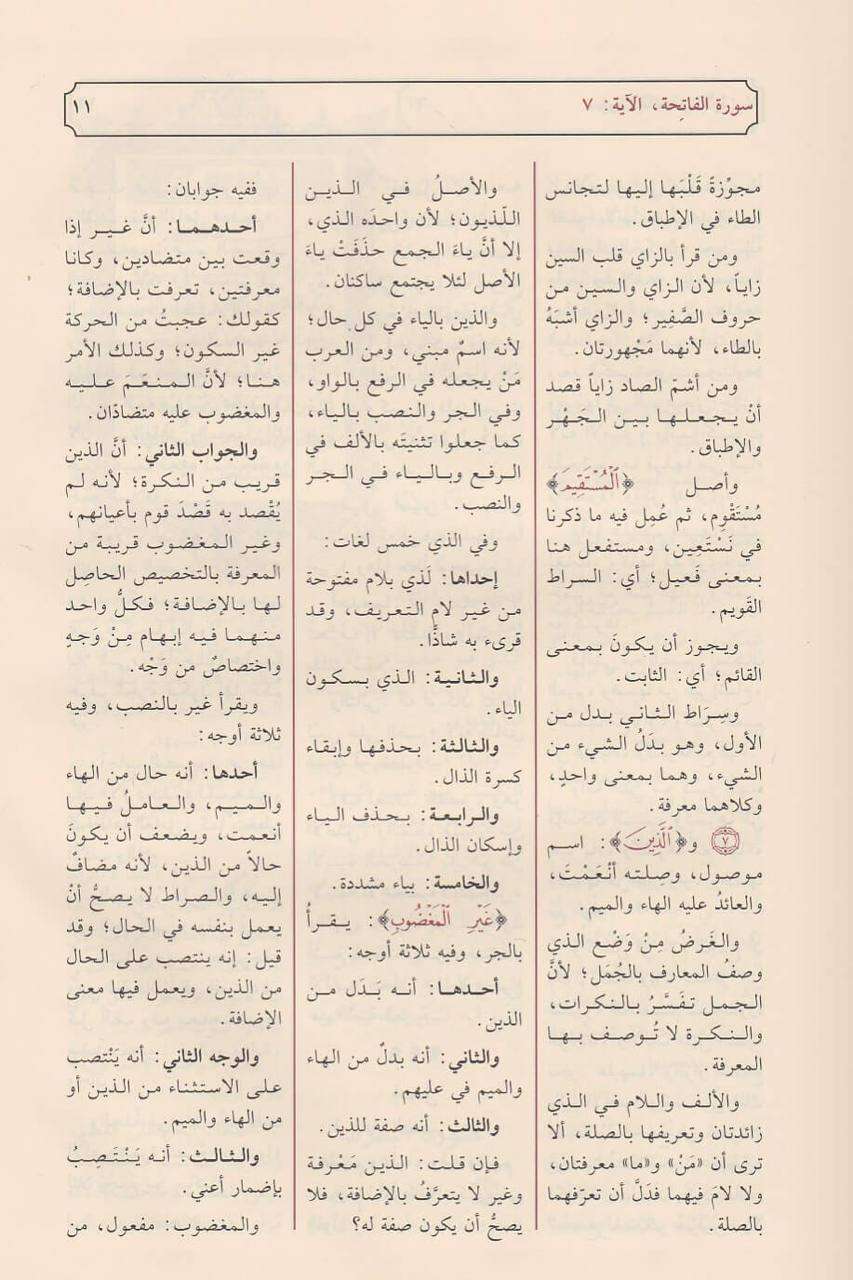 سورة الفاتِحة، الآية: ٧
١١
مجوِّزةً قَلْبَها إليها لتجانس
الطاء في الإطباق.
ومن قرأ بالزاي قلب السين
زاياً، لأن الزاي والسين من
حروف الصَّفِير؛ والزاي أشبَهُ
بالطاء، لأنهما مَجْهورتان.
ومن أشمّ الصاد زاياً قصد
أنْ يجعلها بين الجَهْر
والإطباق.
وأصل ﴿ٱلْمُسْتَقِيمَ﴾
مُسْتَقْوِم، ثم عُمِل فيه ما ذكرنا
في نَسْتَعِين، ومستفعل هنا
بمعنى فَعيل؛ أي: السراط
القَويم.
ويجوز أن يكونَ بمعنى
القائم؛ أي: الثابت.
وسِرَاط الثاني بدل من
الأول، وهو بدَلُ الشيء من
الشيء، وهما بمعنى واحدٍ،
وكلاهما معرفة.
٧ و﴿ٱلَّذِينَ﴾: اسم
موصول، وصِلته أنْعَمْتَ،
والعائدُ عليه الهاء والميم.
والغَرضُ مِنْ وَضْع الذي
وصفُ المعارف بالجُمَل؛ لأنَّ
الجمل تفَسَّرُ بالنكرات،
والنكرة لا تُوصف بها
المعرفة.
والألف واللام في الذي
زائدتان وتعريفها بالصلة، ألا
ترى أن «مَنْ» و«ما» معرفتان،
ولا لامَ فيهما فدَلَّ أن تعرّفهما
بالصلة.
والأصلُ في الذين
اللّذيون؛ لأن واحدَه الذي،
إلا أنَّ ياءَ الجمع حذَفَتْ ياءَ
الأصل لئلا يجتمع ساكنان.
والذين بالياء في كل حال؛
لأنه اسمٌ مبني، ومن العرب
مَنْ يجعله في الرفع بالواو،
وفي الجر والنصب بالياء،
كما جعلوا تثنيتَه بالألف في
الرفع وبالياء في الجر
والنصب.
وفي الذي خمس لغات:
إحداها: لَذي بلام مفتوحة
من غير لام التعريف، وقد
قرىء به شاذًّا.
والثانية: الذي بسكون
الياء.
والثالثة: بحذفها وإبقاء
كسرة الذال.
والرابعة: بحذف الياء
وإسكان الذال.
والخامسة: بياء مشددة.
﴿غَيْرِ ٱلْمَغْضُوبِ﴾: يقرأُ
بالجر، وفيه ثلاثة أوجه:
أحدها: أنه بَدَل من
الذين.
والثاني: أنه بدلٌ من الهاء
والميم في عليهم.
والثالث: أنه صفة للذين.
فإن قلت: الذين مَعْرفة
وغير لا يتعرَّفُ بالإضافة، فلا
يصحُّ أن يكون صفة له؟
ففيه جوابان:
أحدهما: أنَّ غير إذا
وقعت بين متضادين، وكانا
معرفتين، تعرفت بالإضافة؛
كقولك: عجبتُ من الحركة
غير السكون؛ وكذلك الأمر
هنا؛ لأنَّ المنعَمَ عليه
والمغضوب عليه متضادّان.
والجواب الثاني: أنَّ الذين
قريب من النكرة؛ لأنه لم
يُقْصد به قَصْدَ قوم بأعيانهم،
وغير المغضوب قريبة من
المعرفة بالتخصيص الحاصِل
لها بالإضافة؛ فكلُّ واحد
منهما فيه إبهام مِنْ وَجهٍ
واختصاصٌ من وَجْه.
ويقرأ غير بالنصب، وفيه
ثلاثة أوجه:
أحدها: أنه حال من الهاء
والميم، والعاملُ فيها
أنعمت، ويضعف أن يكونَ
حالاً من الذين، لأنه مضافٌ
إليه، والصراط لا يصحُّ أنْ
يعمل بنفسه في الحال؛ وقد
قيل: إنه ينتصب على الحال
من الذين، ويعمل فيها معنى
الإضافة.
والوجه الثاني: أنه يَنْتصب
على الاستثناء من الذين أو
من الهاء والميم.
والثالث: أنه يَنْتَصِبُ
بإضمار أعني.
والمغضوب: مفعول، من